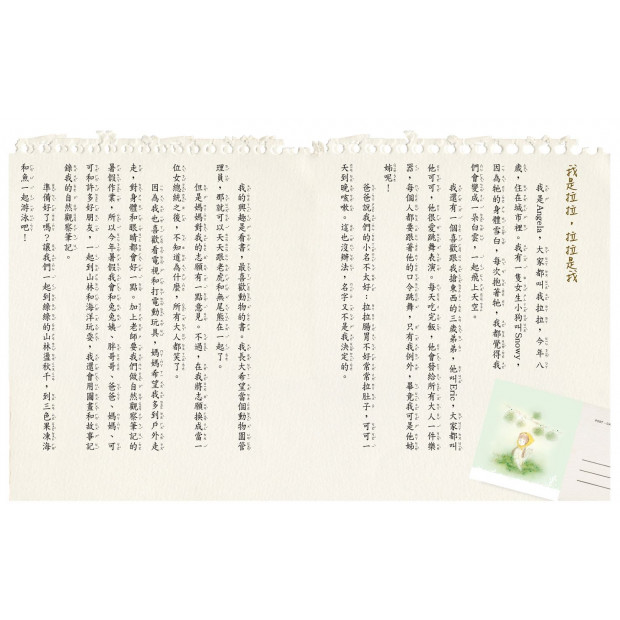 我是拉拉，拉拉是我
我是Angela，大家都叫我拉拉，今年八
歲，住在城市裡。我有一隻女生小狗叫Snowy，
因為牠的身體雪白，每次抱著牠，我都覺得我
們會變成一朵白雲，一起飛上天空。
我還有一個喜歡跟我搶東西的三歲弟弟，他叫Eric，大家都叫
他可可，他很愛跳舞表演。每天吃完飯，他會發給所有大人一件樂
器，每個人都要跟著他的口令跳舞，只有我例外，畢竟我可是他姊
姊呢！
爸爸說我們的小名不太好：拉拉腸胃不好常常拉肚子，可可一
天到晚咳嗽。這也沒辦法，名字又不是我決定的。
我的興趣是看書，最喜歡動物的書。我長大希望當個動物園管
理員，那就可以天天跟老虎和無尾熊在一起了。
但是媽媽對我的志願有一點意見。不過，在我將志願換成當一
位女總統之後，不知道為什麼，所有大人都笑了。
因為我也喜歡看電視和打電動玩具，媽媽希望我多到戶外走
走，對身體和眼睛都會好一點。加上老師要我們做自然觀察筆記的
暑假作業，所以今年暑假我會和兔兔姨、胖哥哥、爸爸、媽媽、可
可和許多好朋友，一起到山林和海洋玩耍，我還會用圖畫和故事記
錄我的自然觀察筆記。
準備好了嗎？讓我們一起到綠綠的山林盪秋千，到三色果凍海
和魚一起游泳吧！